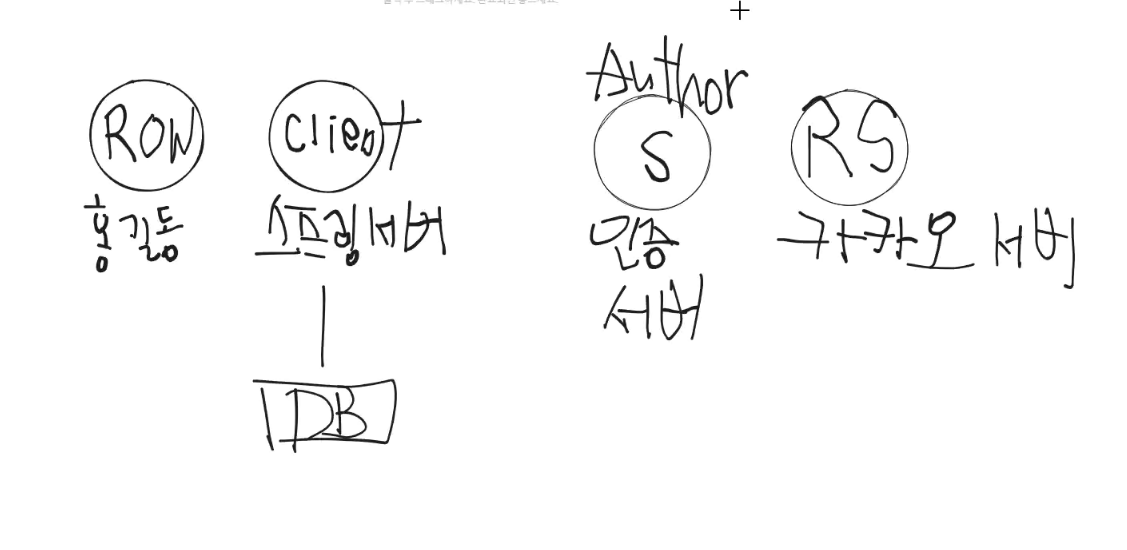 ROW
홍길동
Client
스프링서버
DB
Author
S
인증
서버
RS
카카오 서버